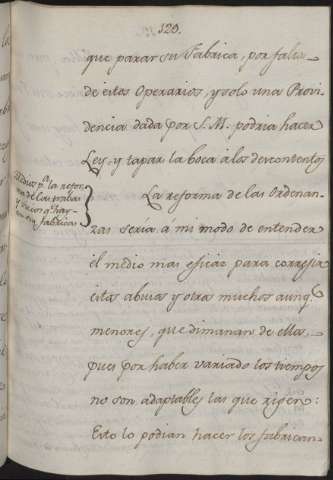 129.
que parar su Fabrica, por falta
de estos Operarios, y solo una Provi
dencia dada por S.M. podria hacer
Ley, y tapar la boca à los descontentos
Medios pa. la refor
ma de las trabas
y vicios q. hay
en fabricas
La reforma de las Ordenan-
zas seria à mi modo de entender
el medio mas eficaz para corregir
estos abusos y otros muchos aunq
menores, que dimanan de ellas,
pues por haber variado los tiempos
no son adaptables las que rigen:
Esto lo podian hacer los fabrican-